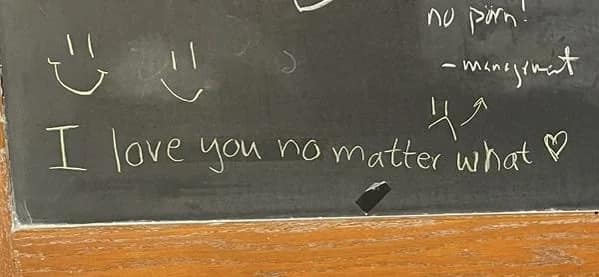 no porn!
-management
I love you no matter what ♡